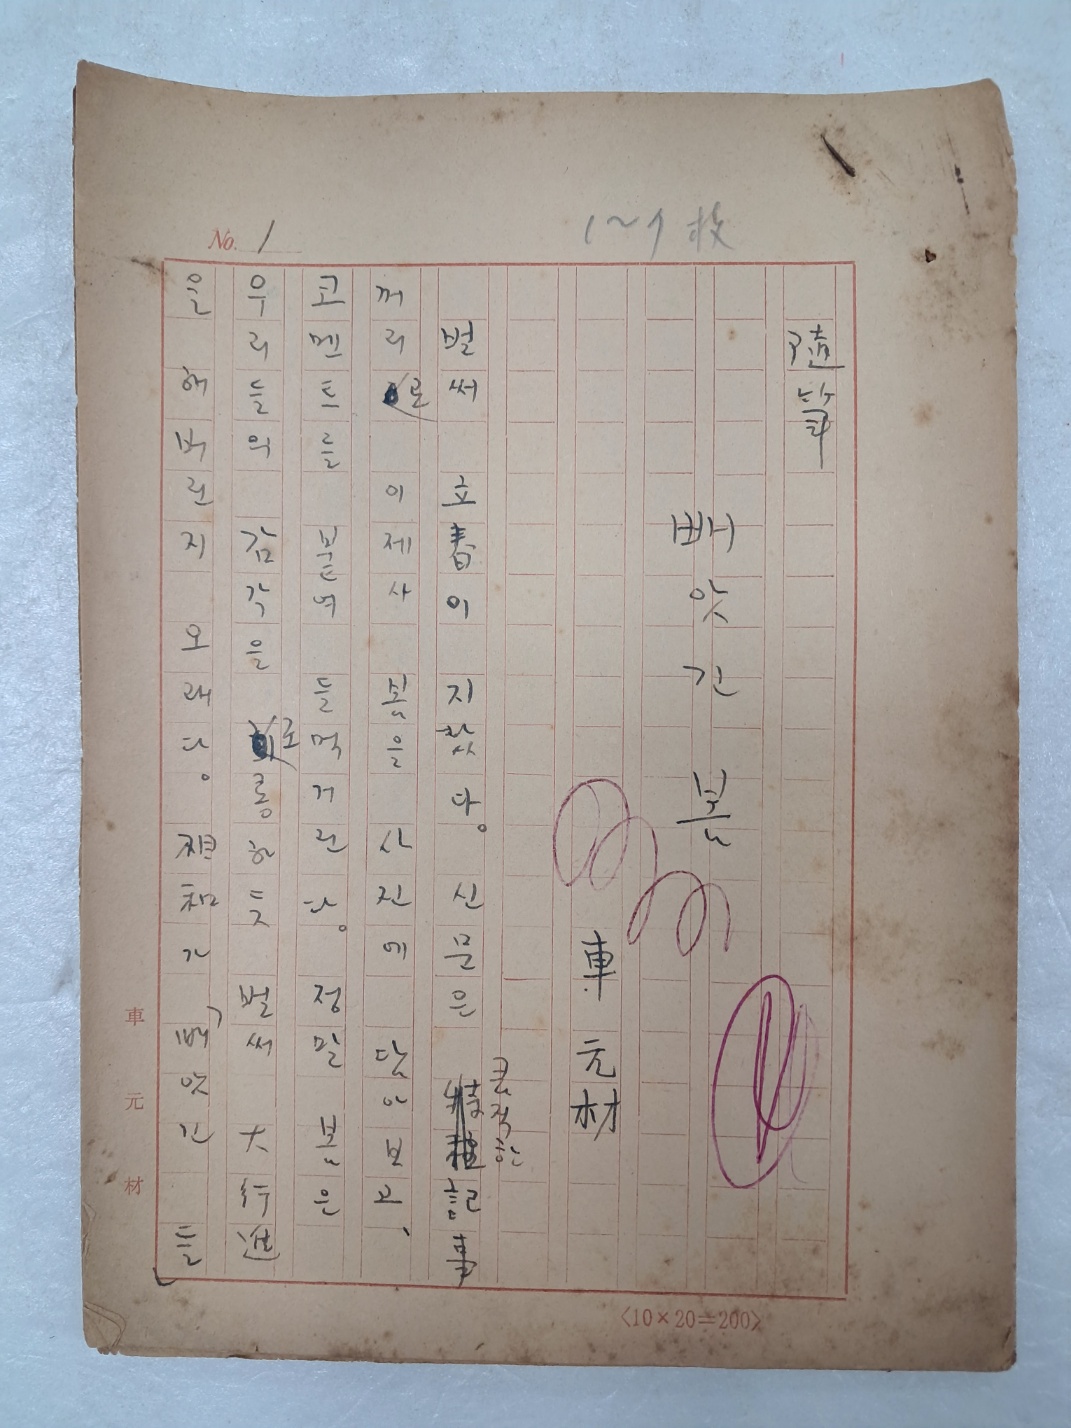 No. 1
1~7 枚
隨筆
빼앗긴 봄
車元材
벌써 立春이 지났다. 신문은 큼직한 記事
꺼리로 이제사 봄을 사진에 담아보고、
코멘트를 붙여 들먹거린다. 정말 봄은
우리들의 감각을 조롱하듯 벌써 大行進
을 해버린지 오래다. 相和가, 빼앗긴 들
車元材
<10×20=200>